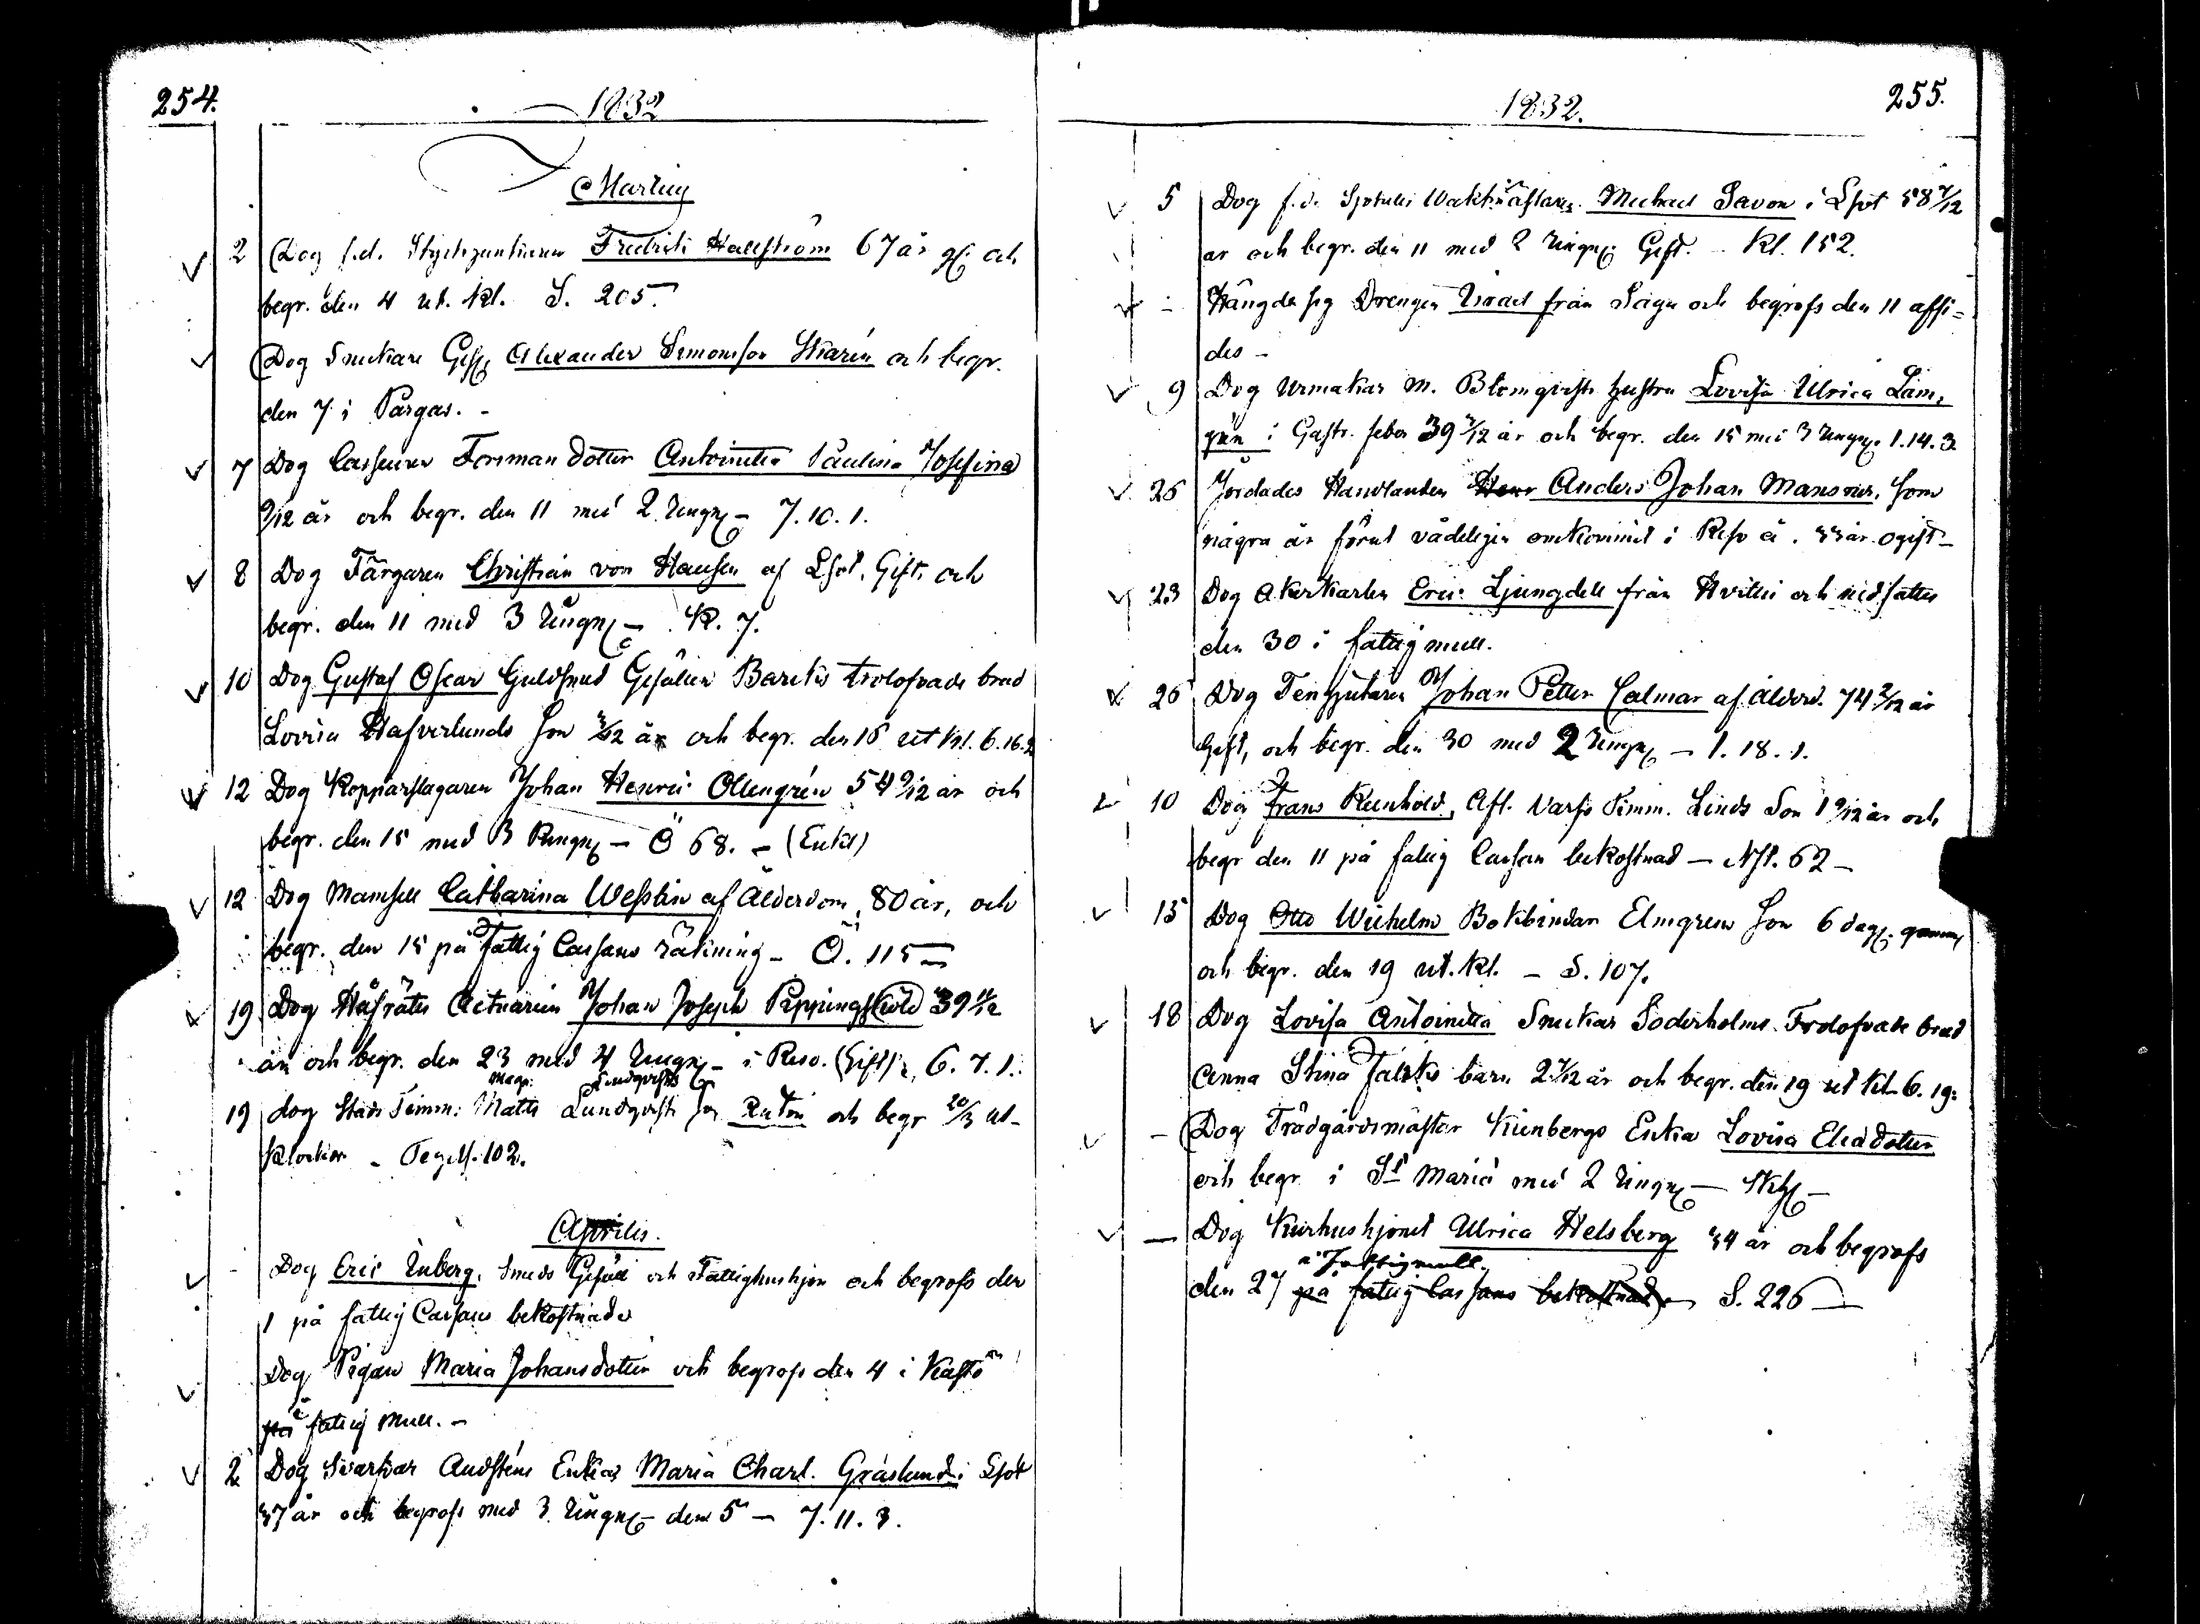 254.
1832
Martius
2 Dog f.d. Fredrik Hallström 67 år gl. och
begr. den 4 ut. Kl. S. 205.
Dog Snickare Ges. Alexander Simonsson Skarin och begr.
den 7 i Pargas. -
7 Dog Casseuren Forsman dotter Antoinetta Paulina Josefina
9/12 år och begr. den 11 med 2 Ringn. - 7.10.1.
8 Dog Färgaren Christian von Hausen af Lsot, Gift, och
begr. den 11 med 3 Ringn. - K. 7.
10 Dog Gustaf Oscar Guldsmed Gesällen Barcks trolofvade brud
Lovisa Hafverlunds son 3/12 år och begr. den 15 ut Kl. 6.16.2
12 Dog Kopparslagaren Johan Henric Ollengrén 54 9/12 år och
begr. den 15 med 3 Ringn. - Ö 68. - (Enkl)
12 Dog Mamsell Catharina Wesslin af Ålderdom, 80 år, och
begr. den 15 på Fattig Cassans räkning - Ö. 115 -
19 Dog Håfrätts Actuarien Johan Joseph Pippingsköld 39 11/12
år och begr. den 23 med 4 Ringn. - i Reso. (Gift), 6.7.1.
Magn. Lindqvists
19 dog Stads Timm: Matts Lundqvists son Anton och begr 20/3 ut-
Klockor - Tegelsl. 102.
Aprilis.
Dog Eric Enberg, Smeds Gesäll och Fattighushjon och begrofs den
1 på fattig Cassans bekostnad
Dog Pigan Maria Johansdotter och begrofs den 4 i Kastö
på fattig mull. -
2 Dog Svarfvar Audsténs Enka Maria Charl. Gråslund i Lsot
37 år och begrofs med 3 Ringn. den 5 - 7.11.3.
1832.
255.
5 Dog f.d. Wacktmästaren Michael Savon i Lsot 58 7/12
år och begr. den 11 med 2 Ringn. Gift. - Kl. 152.
- Hängde sig Drengen Israel från och begrofs den 11 afsi=
des -
9 Dog Urmakar M. Blomqvists hustru Lovisa Ulrica Lam,
grén i Gastr. feber 39 3/12 år och begr. den 15 med 3 Ringn. 1.14.3
25 Jordades Handlanden Herr Anders Johan Mansner, som
några år förut vådeligen omkommit i Reso å. 33 år ogift -
23 Dog Åkerkarlen Eric Ljungdell från Hvittis och nedsattes
den 30 i fattigmull.
26 Dog Tenngjutaren Johan Petter Calmar af ålderd. 74 2/12 år
Gift, och begr. den 30 med 2 Ringn. - 1.18.1.
10 Dog Frans Reinhold, Afl. Varfs Timm. Linds Son 1 9/12 år och
begr den 11 på fattig Cassans bekostnad - Nst. 62 -
15 Dog Otto Wilhelm Bokbindar Elmgrens son 6 dag. gammal
och begr. den 19 ut. Kl. - S. 107.
18 Dog Lovisa Antoinetta Snickar Söderholms Trolofvade brud
Anna Stina Falcks barn 2 7/12 år och begr. den 19 ut Kl. 6.19.
- Dog Trädgårdsmästar Kienbergs Enka Lovisa Eliædotter
och begr. i St Mariæ med 2 Ringn. -
- Dog Kurhushjonet Ulrica Helsberg 34 år och begrofs
i Fattigmull.
den 27 på fattig Cassans bekostnad - S. 226 -